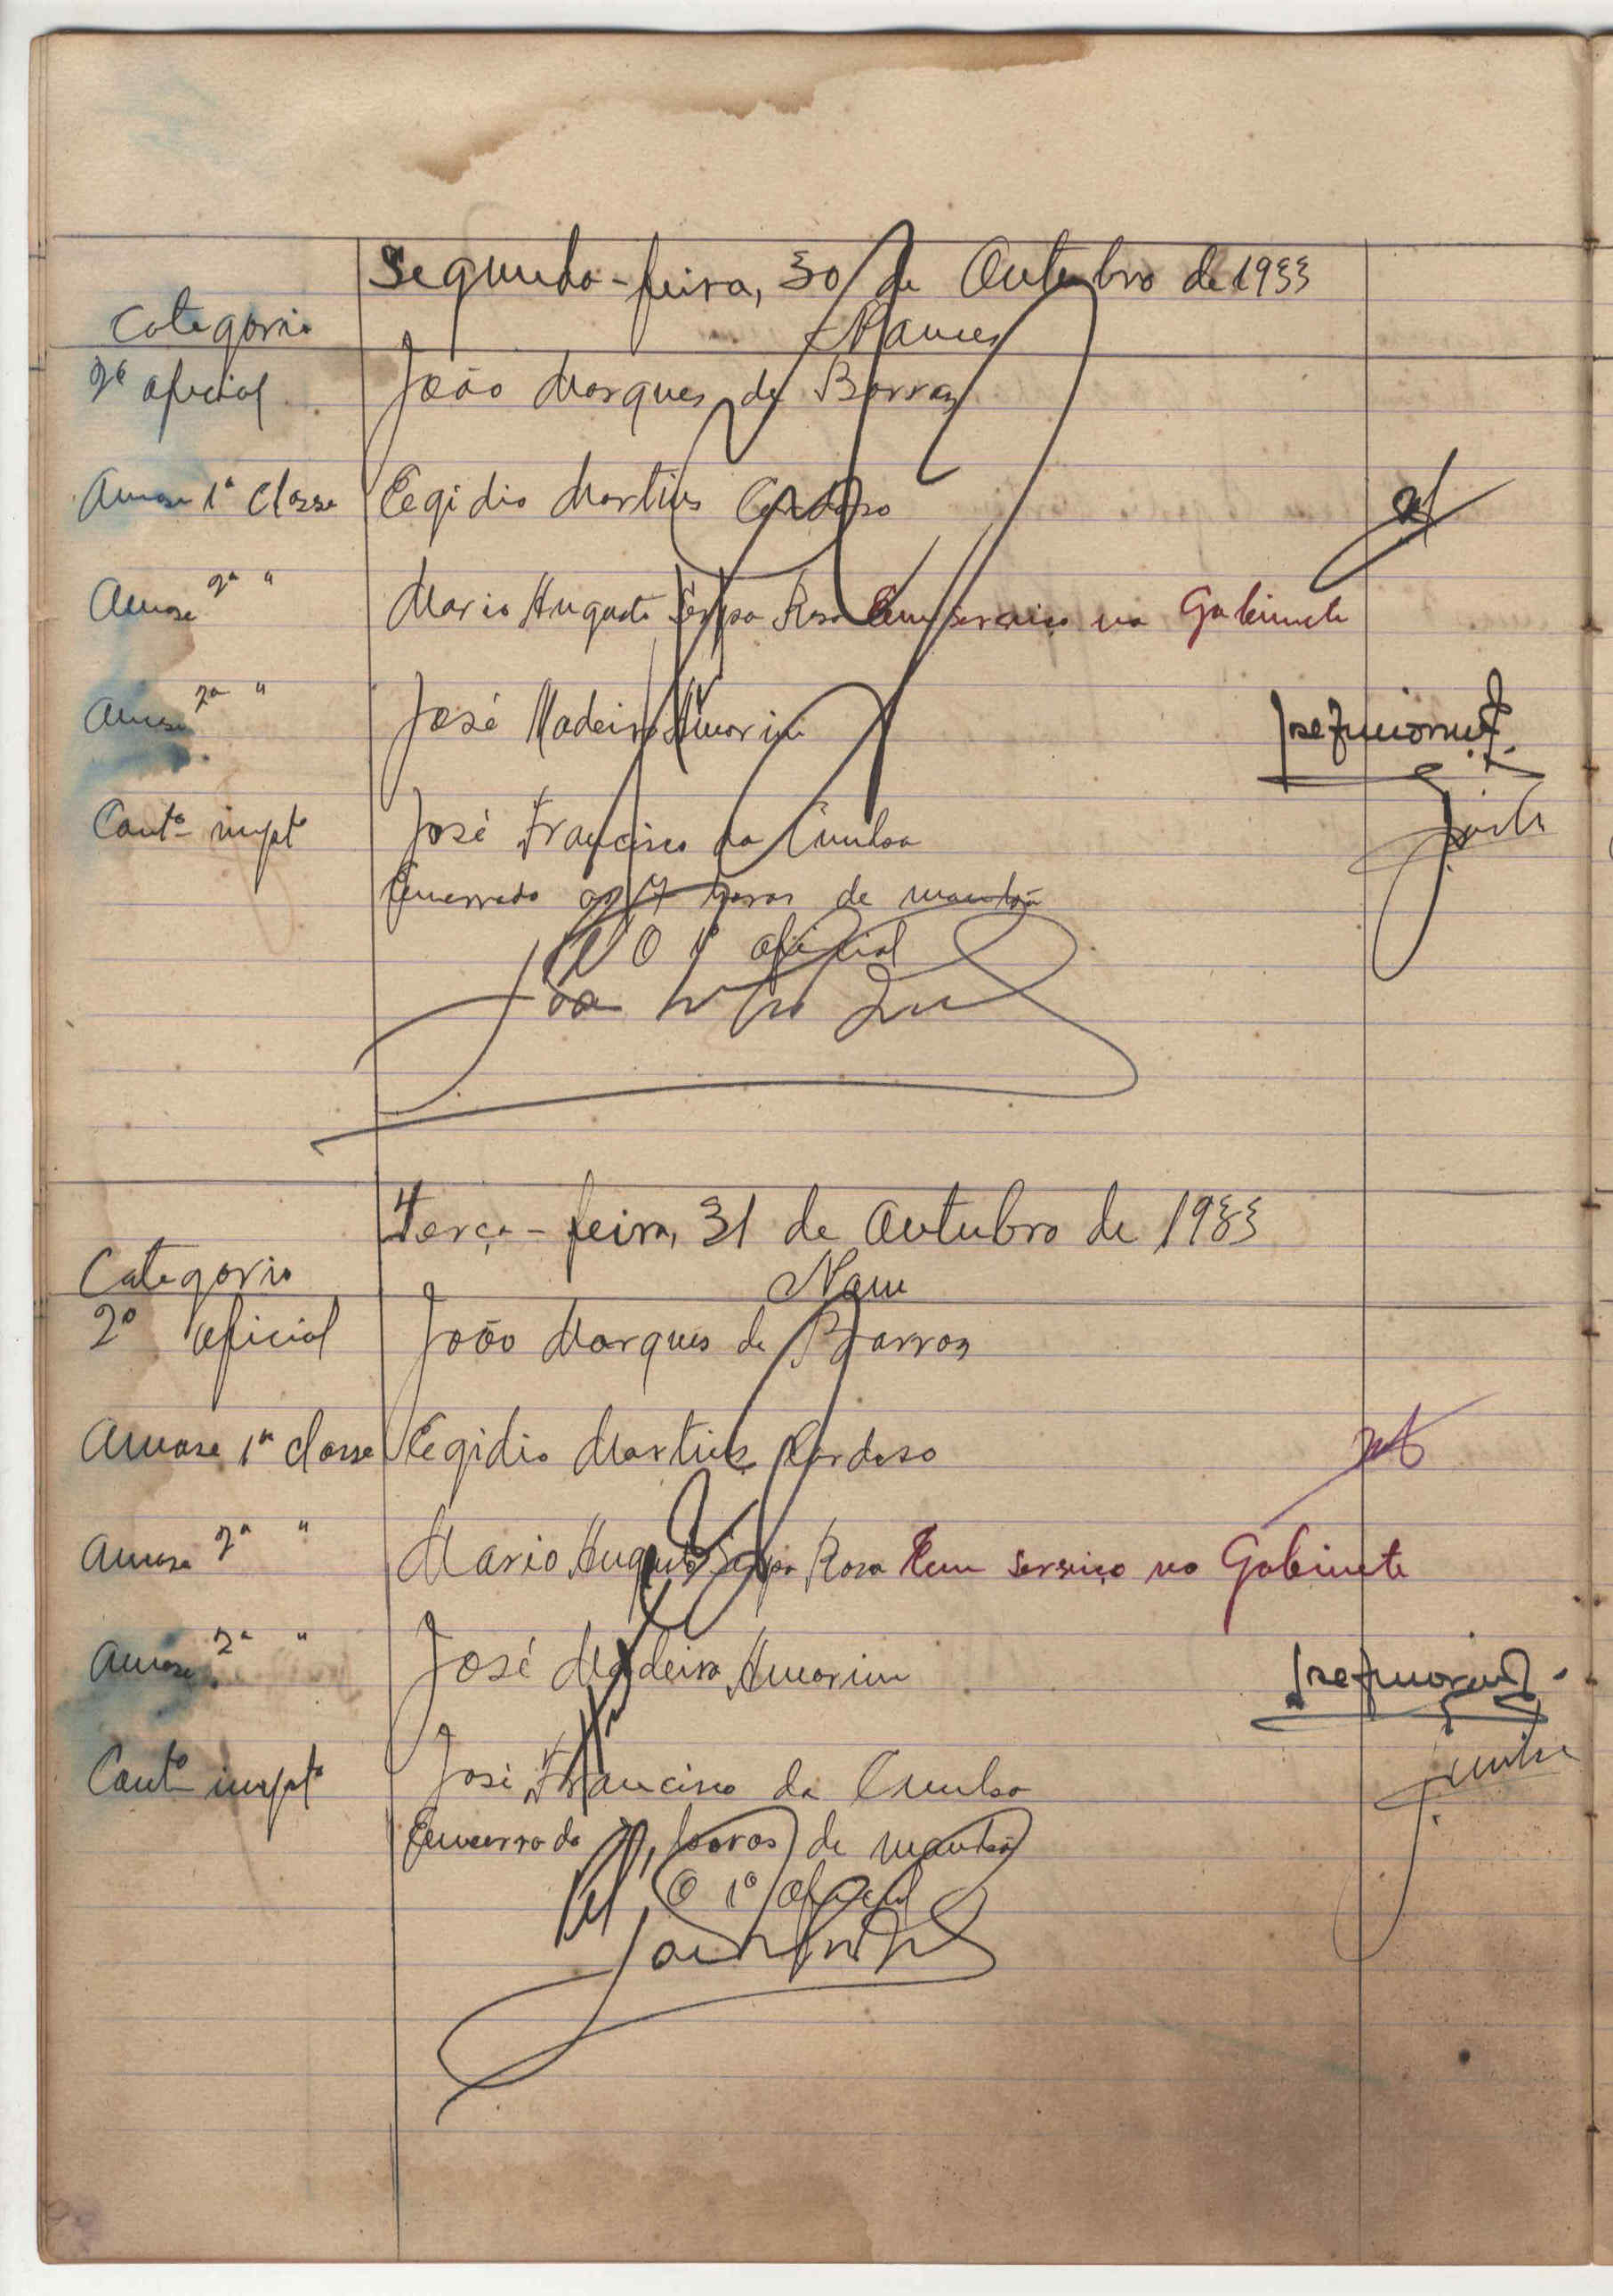 Segunda-feira, 30 de Outubro de 1933
Categoria Nomes
2º oficial João Marques de Barros
Amase 1ª Classe Egidio Martins Cardoso
Amase 2ª " Mario Augusto Serpa Rosa Em serviço no Gabinete
Amase 2ª " José Madeira Amorim José Amorim
Contº impto José Francisco da Cunha
Encerrado as 7 horas de manhã
O 1º oficial
Terça-feira, 31 de Outubro de 1933
Categoria Nome
2º oficial João Marques de Barros
Amase 1ª classe Egidio Martins Cardoso
Amase 2ª " Mario Augusto Serpa Rosa Em serviço no Gabinete
Amase 2ª " José Madeira Amorim José Amorim
Contº impto José Francisco da Cunha
Encerrado horas de manhã
O 1º oficial